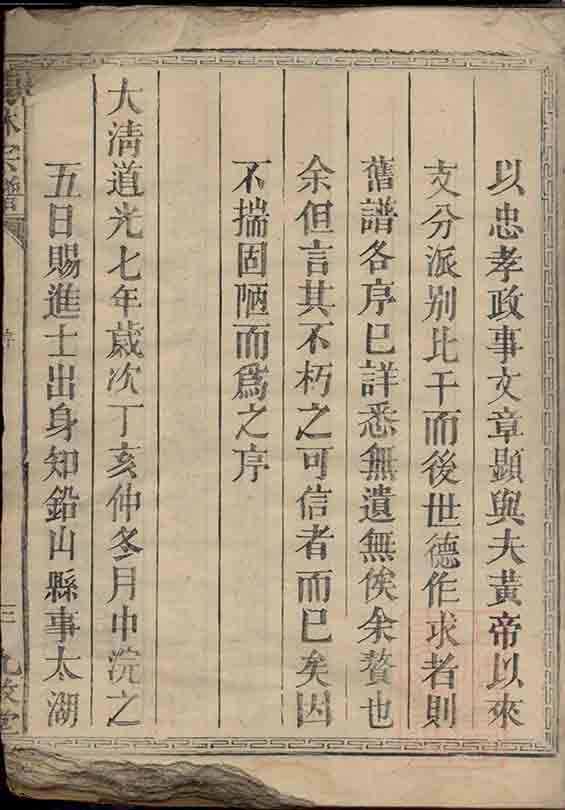 以忠孝政事文章顯與夫黃帝以來
支分派別比干而後世德作求者則
舊譜各序已詳悉無遺無俟余贅也
余但言其不朽之可信者而已矣因
不揣固陋而爲之序
大清道光七年歲次丁亥仲冬月中浣之
五日賜進士出身知鉛山縣事太湖
林宗譜
序
三
九牧堂